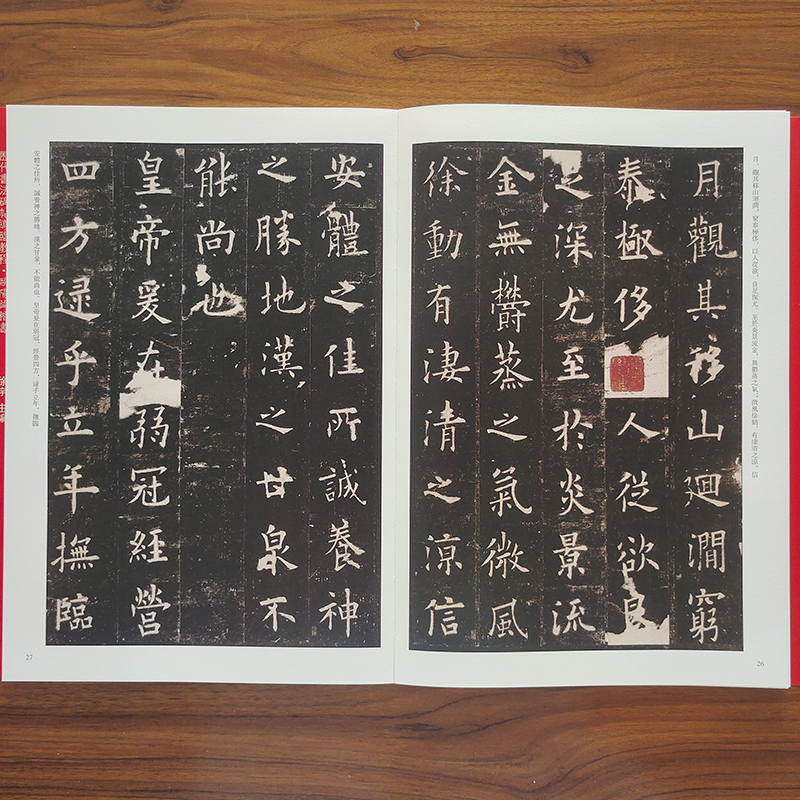 月，觀其移山迴澗，窮泰極侈，以人從欲，良足深尤。至於炎景流金，無鬱蒸之氣，微風徐動，有淒清之涼，信
月觀其移山廻澗窮
泰極侈人從欲良
足深尤至於炎景流
金無鬱蒸之氣微風
徐動有淒清之涼信
26
安體之佳所誠養神
之勝地漢之甘泉不
能尚也
皇帝爰在弱冠經營
四方逮乎立年撫臨
安體之佳所，誠養神之勝地，漢之甘泉，不能尚也。皇帝爰在弱冠，經營四方，逮乎立年，撫臨
27